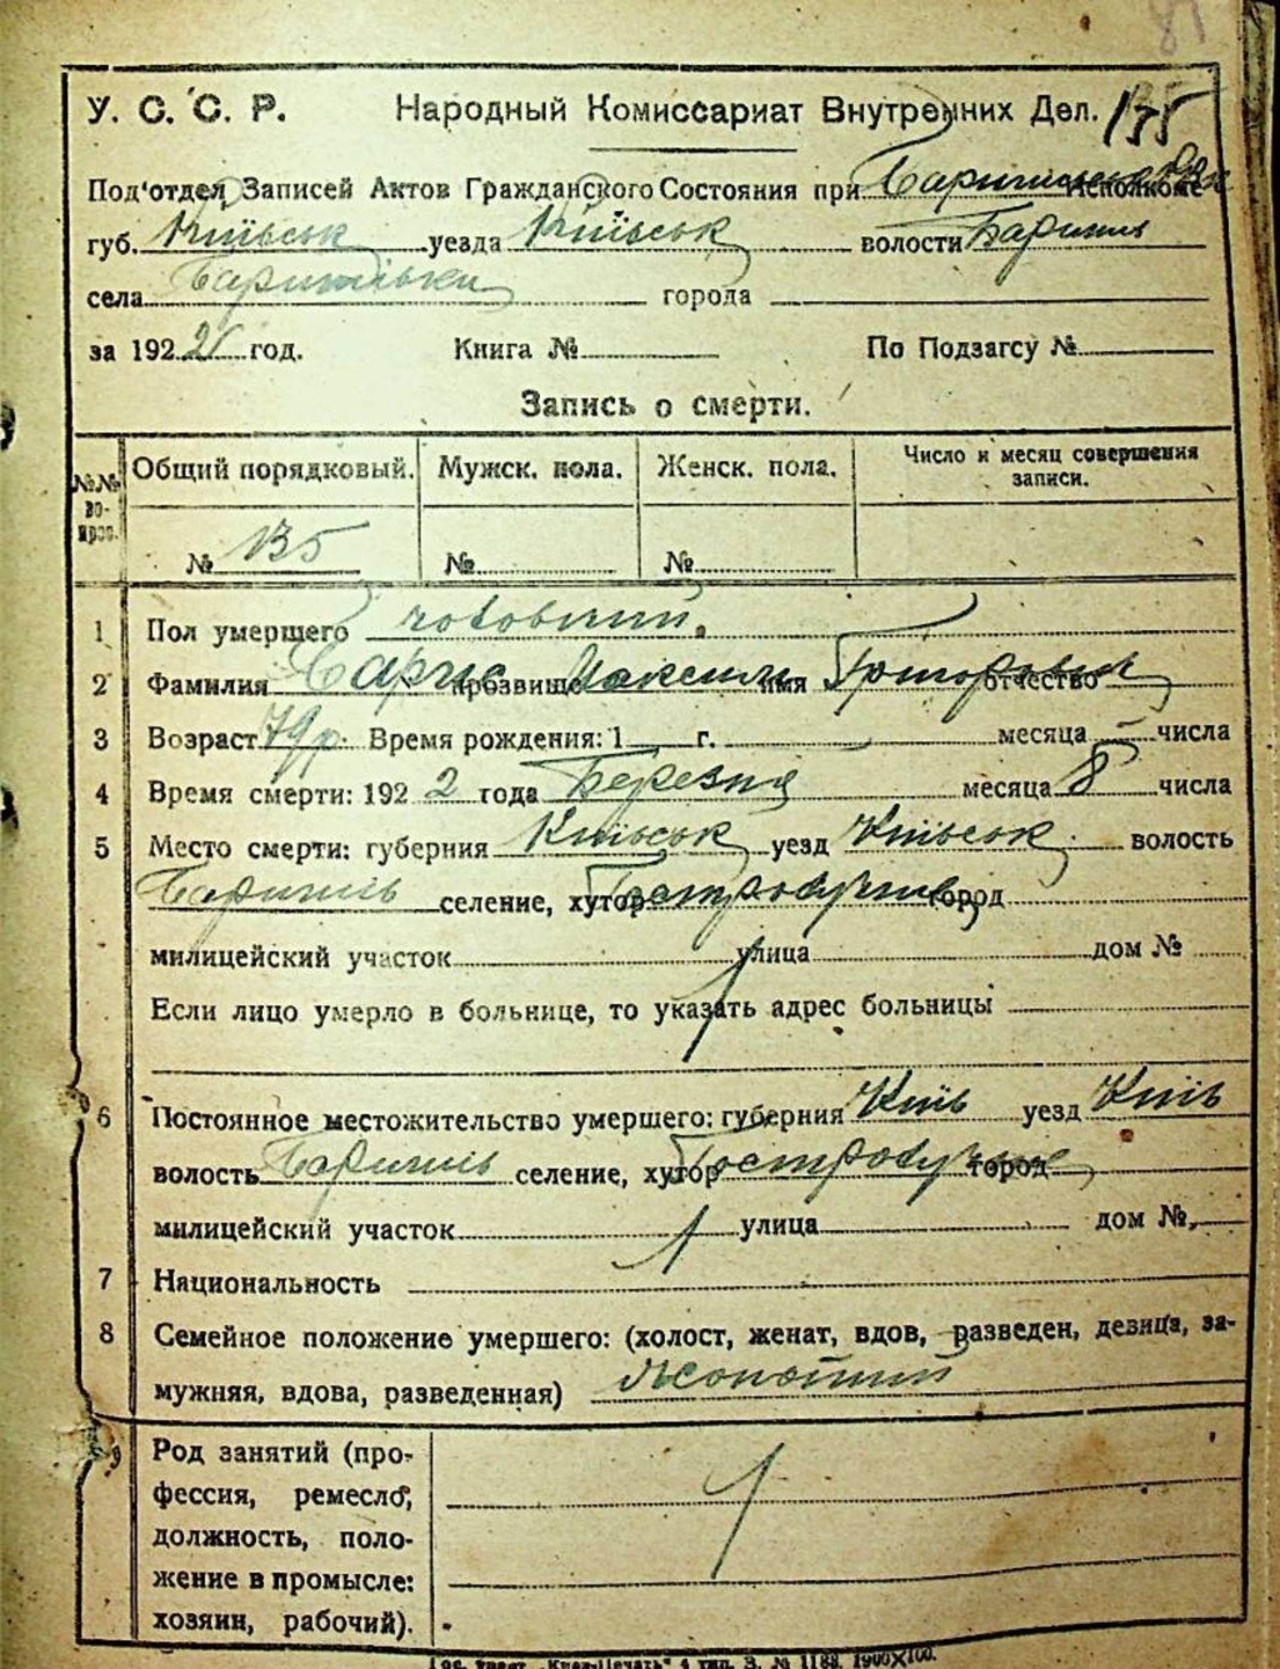 81
У. С. С. Р. Народный Комиссариат Внутренних Дел. 135
Под'отдел Записей Актов Гражданского Состояния при Исполкоме
губ. Київськ уезда Київськ волости Баришпіль
села города
за 1922 год. Книга № По Подзагсу №
Запись о смерти.
№№ во-прос. Общий порядковый. Мужск. пола. Женск. пола. Число и месяц совершения записи.
№ 135 № №
1 Пол умершего чоловічий
2 Фамилия прозвище Максим имя Григорович отчество
3 Возраст 79 р. Время рождения: 1 г. месяца числа
4 Время смерти: 192 2 года Березня месяца 8 числа
5 Место смерти: губерния Київськ уезд Київськ волость
селение, хутор город
милицейский участок улица дом №
Если лицо умерло в больнице, то указать адрес больницы
6 Постоянное местожительство умершего: губерния Київ уезд Київ
волость селение, хутор город
милицейский участок улица дом №
7 Национальность
8 Семейное положение умершего: (холост, женат, вдов, разведен, девица, за-
мужняя, вдова, разведенная) жонатий
9 Род занятий (про-
фессия, ремесло,
должность, поло-
жение в промысле:
хозяин, рабочий).
4 тип. З. № 1188. 1900×100.